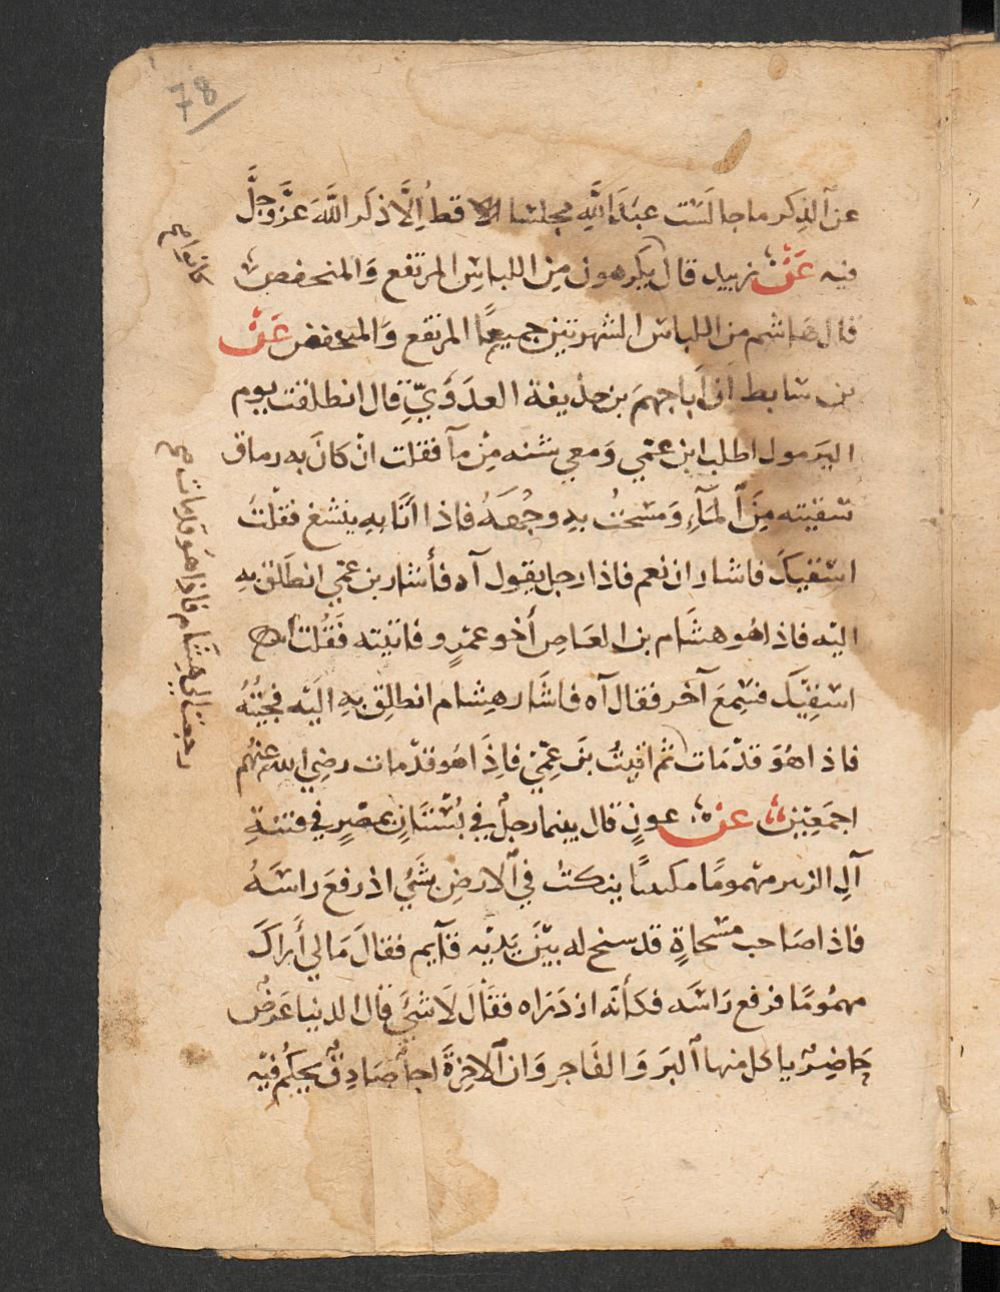 78
عن الذِكر ما جالَسْت عبْدَ اللَّهِ مجلسًا قطُ اِلَّا ذكَر اللَّهَ عَزَّ وَجلَّ
فيه عَنْ زبيد قال يكرهون مِن اللباسِ المرتفع وَالمنخفض
قال هاشم من اللباس الشهرتين جميعًا المرتفع وَالمنخفض عَنْ
بن سابط ان اَبا جهمَ بن حذيفة العدَوَيِّ قال انطلقت يوم
اليَرمول اطلب ابن عمّي وَمعي شنه مِنْ مآ فقلت انْ كانَ به رماق
سْقيته مِنَ المآءِ وَمسَحْتُ بهِ وجْهَهُ فاذا اَنَا بهِ ينشغ فقلْتُ
اسْقيكَ فاشار ان نعم فاذا رجل يقول آه فأشار بن عمّي انطَلق بهِ
اليْه فاذا هُو هشَام بن العَاصِ أخو عمْرٍو فاتيْته فَقُلت
اسْقِيْكَ فسَمِعَ آخر فقال آه فاشَار هِشام انطلِق بهِ الَيْه فجئْتُهُ
فاذا هُوَ قدْ مَات ثم اتيتُ بنَ عِمّيْ فاِذَا هُو قدْ مات رضِي الله عنْهُم
اجمَعِيْن عن عونٍ قال بينما رجلٌ في بُسْتَانٍ بمصْرٍ في فتنةِ
آلِ الزبير مهمومًا مكبسًا ينكتُ في الارضِ بشَيْ اذ رفعَ راسَهُ
فاذا صَاحب مسْحاةٍ قد سنح له بيْنَ يَديْه قآيم فقالَ مَالي أَراكَ
مهمُومًا فرفع رَاسَه فكأنّه ازدَرَاه فقَالَ لَا شَيْ قال الدنيا عَرَضٌ
حَاضِرٌ ياكل منها البَر وَالفَاجر وَان الاخِرَةَ اجلٌ صَادِقٌ يحكُم فيْه
كانوا صح
رجعت الي هِشَام فاذا هُو قد مات صح